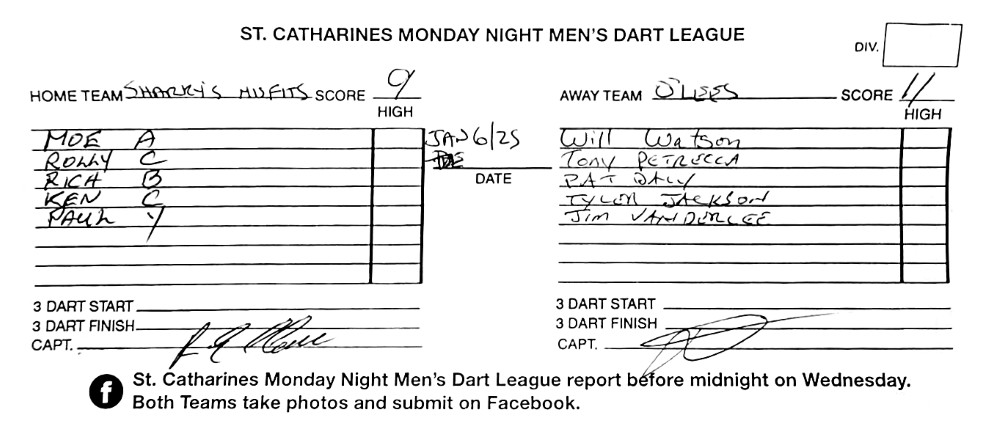 ST. CATHARINES MONDAY NIGHT MEN'S DART LEAGUE
DIV.
HOME TEAM SHARKY'S MISFITS SCORE 9
HIGH
AWAY TEAM O'LEES SCORE 11
HIGH
MOE A
ROLLY C
RICH B
KEN C
PAUL Y
JAN 6/25
DATE
Will Watson
TONY PETRUCCA
PAT DALY
TYLER JACKSON
JIM VANDERLEE
3 DART START
3 DART FINISH
CAPT.
3 DART START
3 DART FINISH
CAPT.
f St. Catharines Monday Night Men's Dart League report before midnight on Wednesday.
Both Teams take photos and submit on Facebook.